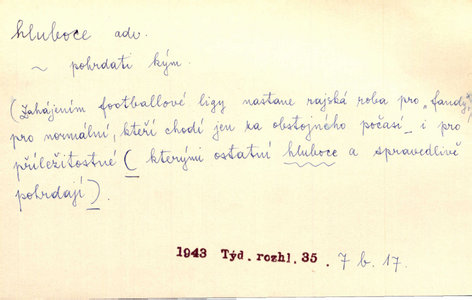 hluboce adv.
~ pohrdati kým.
(Zahájením footballové ligy nastane rajská roba pro „fandy",
pro normální, kteří chodí jen za obstojného počasí_ i pro
příležitostné ( kterými ostatní hluboce a spravedlivě
pohrdají).
1943 Týd. rozhl. 35. 7 b. 17.